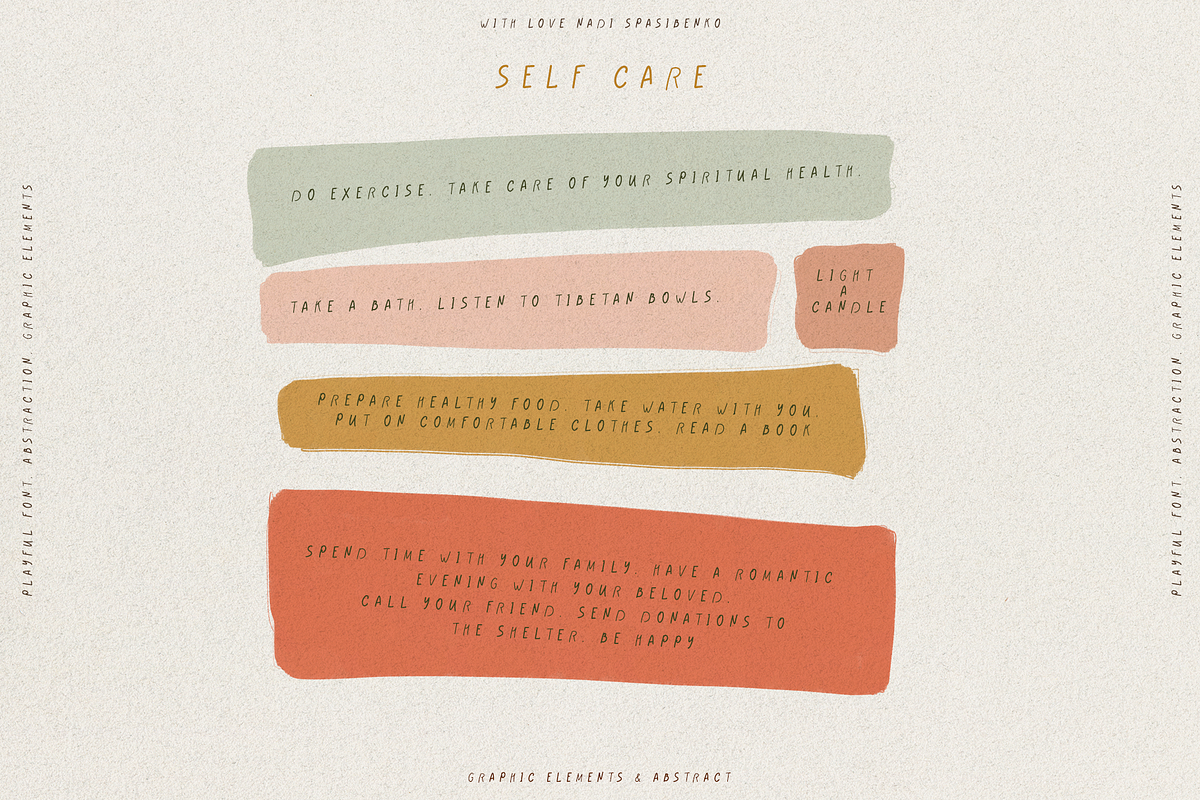 WITH LOVE NADI SPASIBENKO
SELF CARE
DO EXERCISE. TAKE CARE OF YOUR SPIRITUAL HEALTH.
TAKE A BATH. LISTEN TO TIBETAN BOWLS.
LIGHT
A
CANDLE
PREPARE HEALTHY FOOD. TAKE WATER WITH YOU.
PUT ON COMFORTABLE CLOTHES. READ A BOOK
SPEND TIME WITH YOUR FAMILY. HAVE A ROMANTIC
EVENING WITH YOUR BELOVED.
CALL YOUR FRIEND. SEND DONATIONS TO
THE SHELTER. BE HAPPY
PLAYFUL FONT. ABSTRACTION. GRAPHIC ELEMENTS
PLAYFUL FONT. ABSTRACTION. GRAPHIC ELEMENTS
GRAPHIC ELEMENTS & ABSTRACT